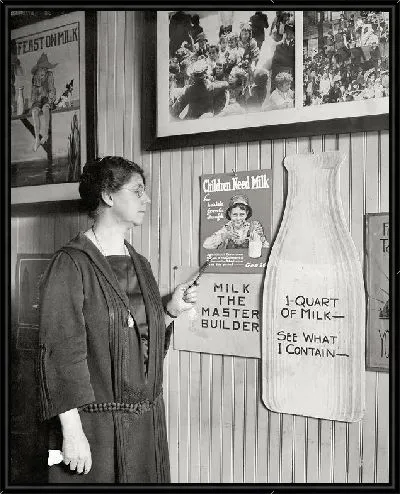 FEAST ON MILK
Children Need Milk
MILK
THE
MASTER
BUILDER
1-QUART
OF MILK—
SEE WHAT
I CONTAIN—